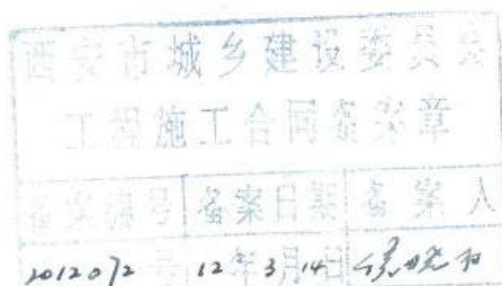 西安市城乡建设委员会
工程施工合同备案章
备案编号 备案日期 备案人
2012072号 12年3月14日